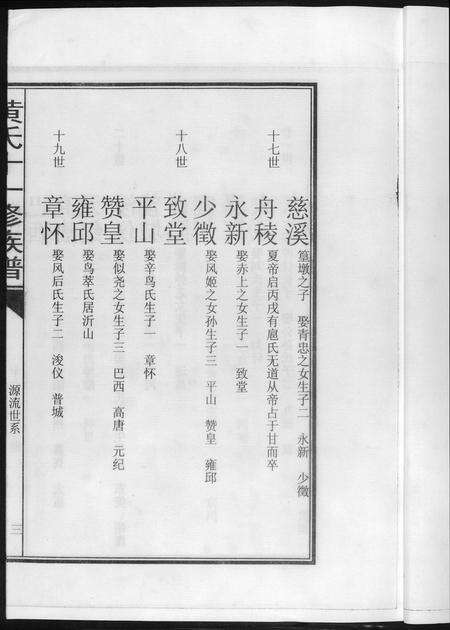 慈溪 篁墩之子 娶青忠之女生子二 永新 少徵
十七世 舟稜 夏帝启丙戌有扈氏无道从帝占于甘而卒
永新 娶赤上之女生子一 致堂
少徵 娶风姬之女孙生子三 平山 赞皇 雍邱
十八世 致堂
平山 娶辛鸟氏生子一 章怀
赞皇 娶似尧之女生子三 巴西 高唐 元纪
雍邱 娶鸟萃氏居沂山
十九世 章怀 娶风后氏生子二 浚仪 普城
黄氏十一修族谱
源流世系
三